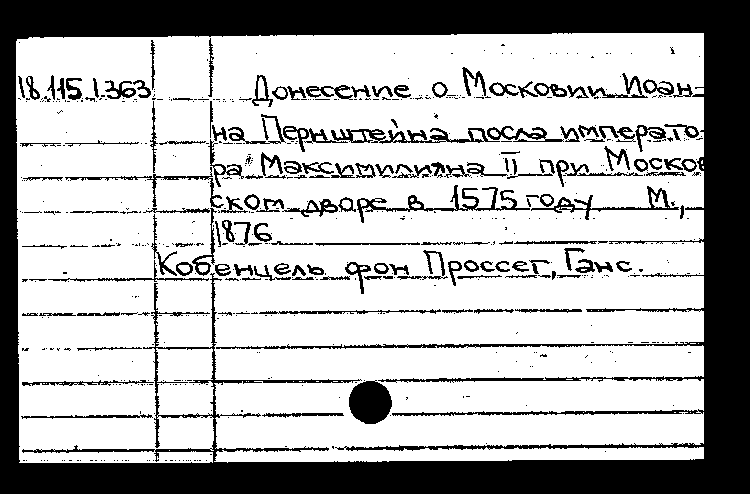 18.115.1.363 Донесение о Московии Иоан-
на Пернштейна посла императо-
ра Максимилияна II при Москов
ском дворе в 1575 году М.,
1876.
Кобенцель фон Проссег, Ганс.